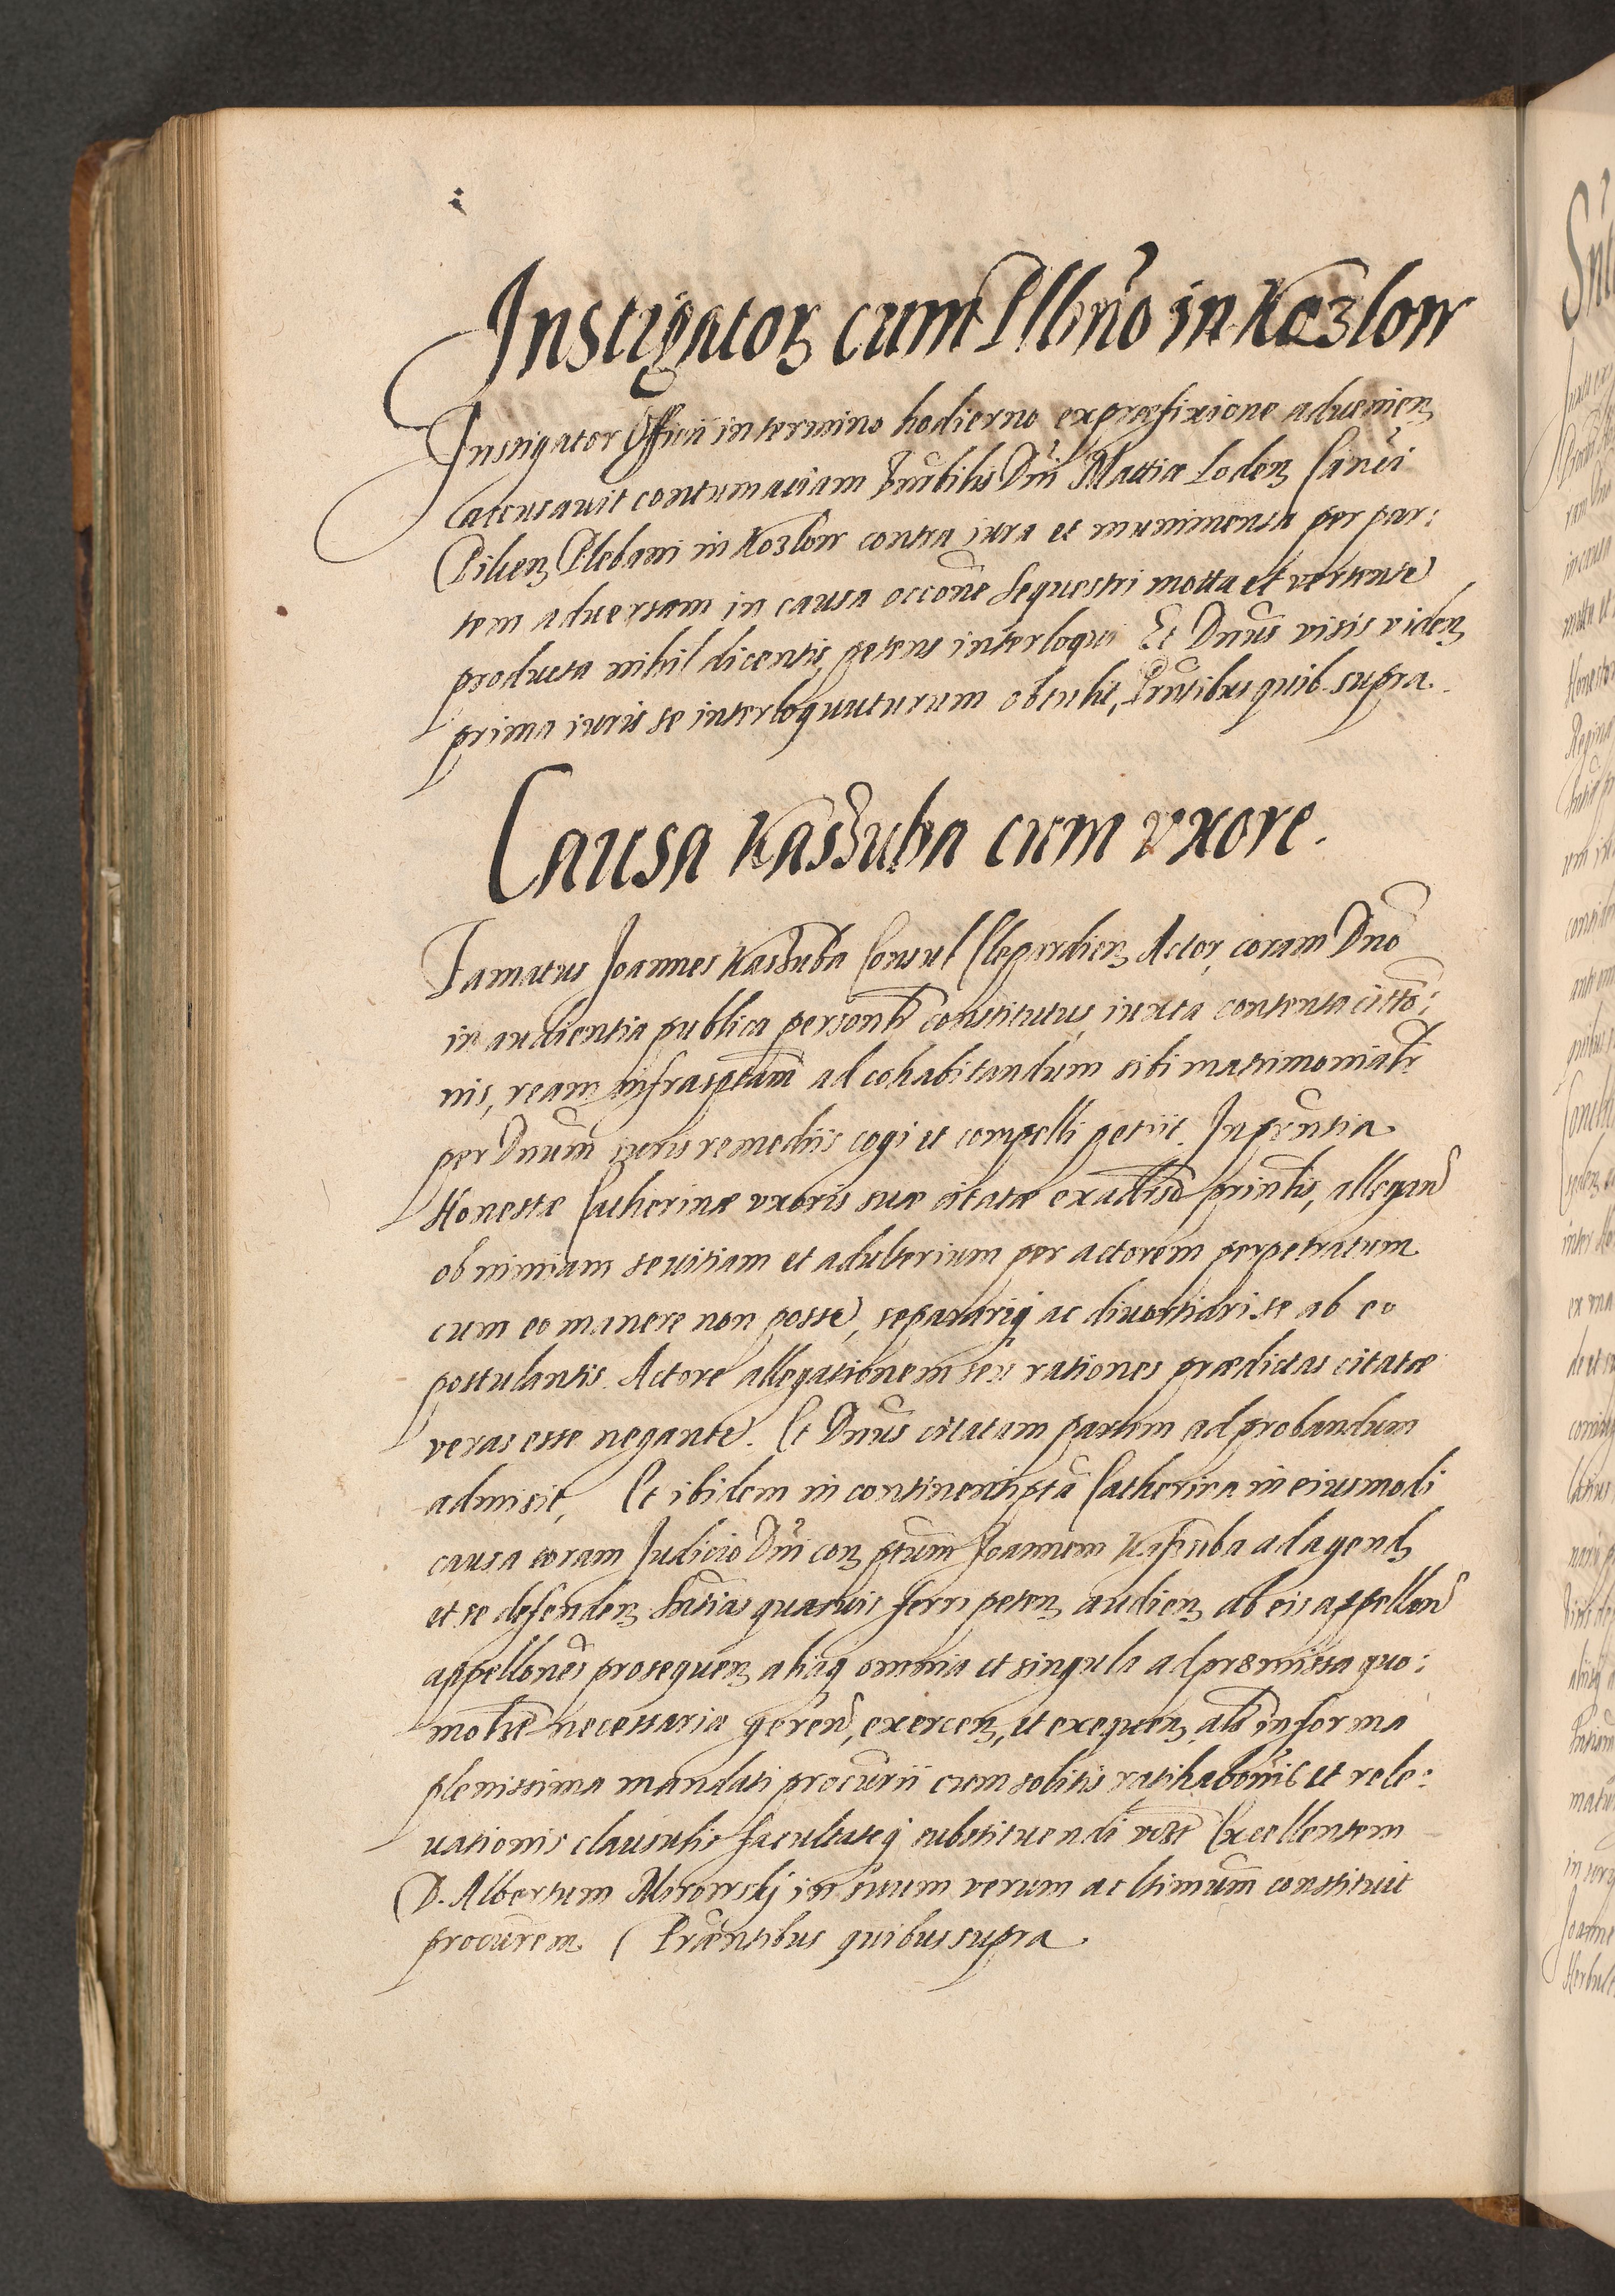 Instigator cum Plbno in Kozlow
Instigator Officii in termino hodierno ex praefixione advenien
accusavit contumaciam Dni Mattiæ Loden Canci
Pilien Plebani in Kozlow contra iura et munimenta per par:
tem adversam in causa occone sequestri motta et vertente
producta nihil dicentis, petens interloqui Et Dnus visis viden
prima iuris se interloquuturum obtulit, Pntibus quib supra
Causa Kaszuba cum uxore.
Famatus Joannes Kaszuba Consul Clepardien Actor, coram Dno
in audientia publica personlr constitutus, iuxta contenta citto:
nis, ream infrasptam ad cohabitandum sibi matrimonialr
per Dnum iuris remediis cogi et compelli petiit. In pntia
Honestæ Catherinæ uxoris suæ citatæ ex adverso printis, allegan
ob nimiam sevitiam et adulterium per actorem perpetratum
cum eo manere non posse, separariq ac divortiari se ab eo
postulantis. Actore allegationem seu rationes prædictas citatæ
veras esse negante. Et Dnus citatam partem ad probandum
admisit, Et ibidem in continenti pta Catherina in eiusmodi
causa coram Judicio Dni con ptum Joannem Kaszuba ad agend
et se defenden sntias quasvis ferri peten audien ab eis appellan
appellones prosequen aliaq omnia et singula ad præmissa quo:
molbt necessaria geren, exercen, et exequen, als in forma
plenissima mandati procurii cum solitis ratihabonis et rele:
vationis clausulis facultateq substituendi Excellentem
D. Albertum Mirowskj in suum verum ac ltimum constituit
procurem Præntibus quibus supra